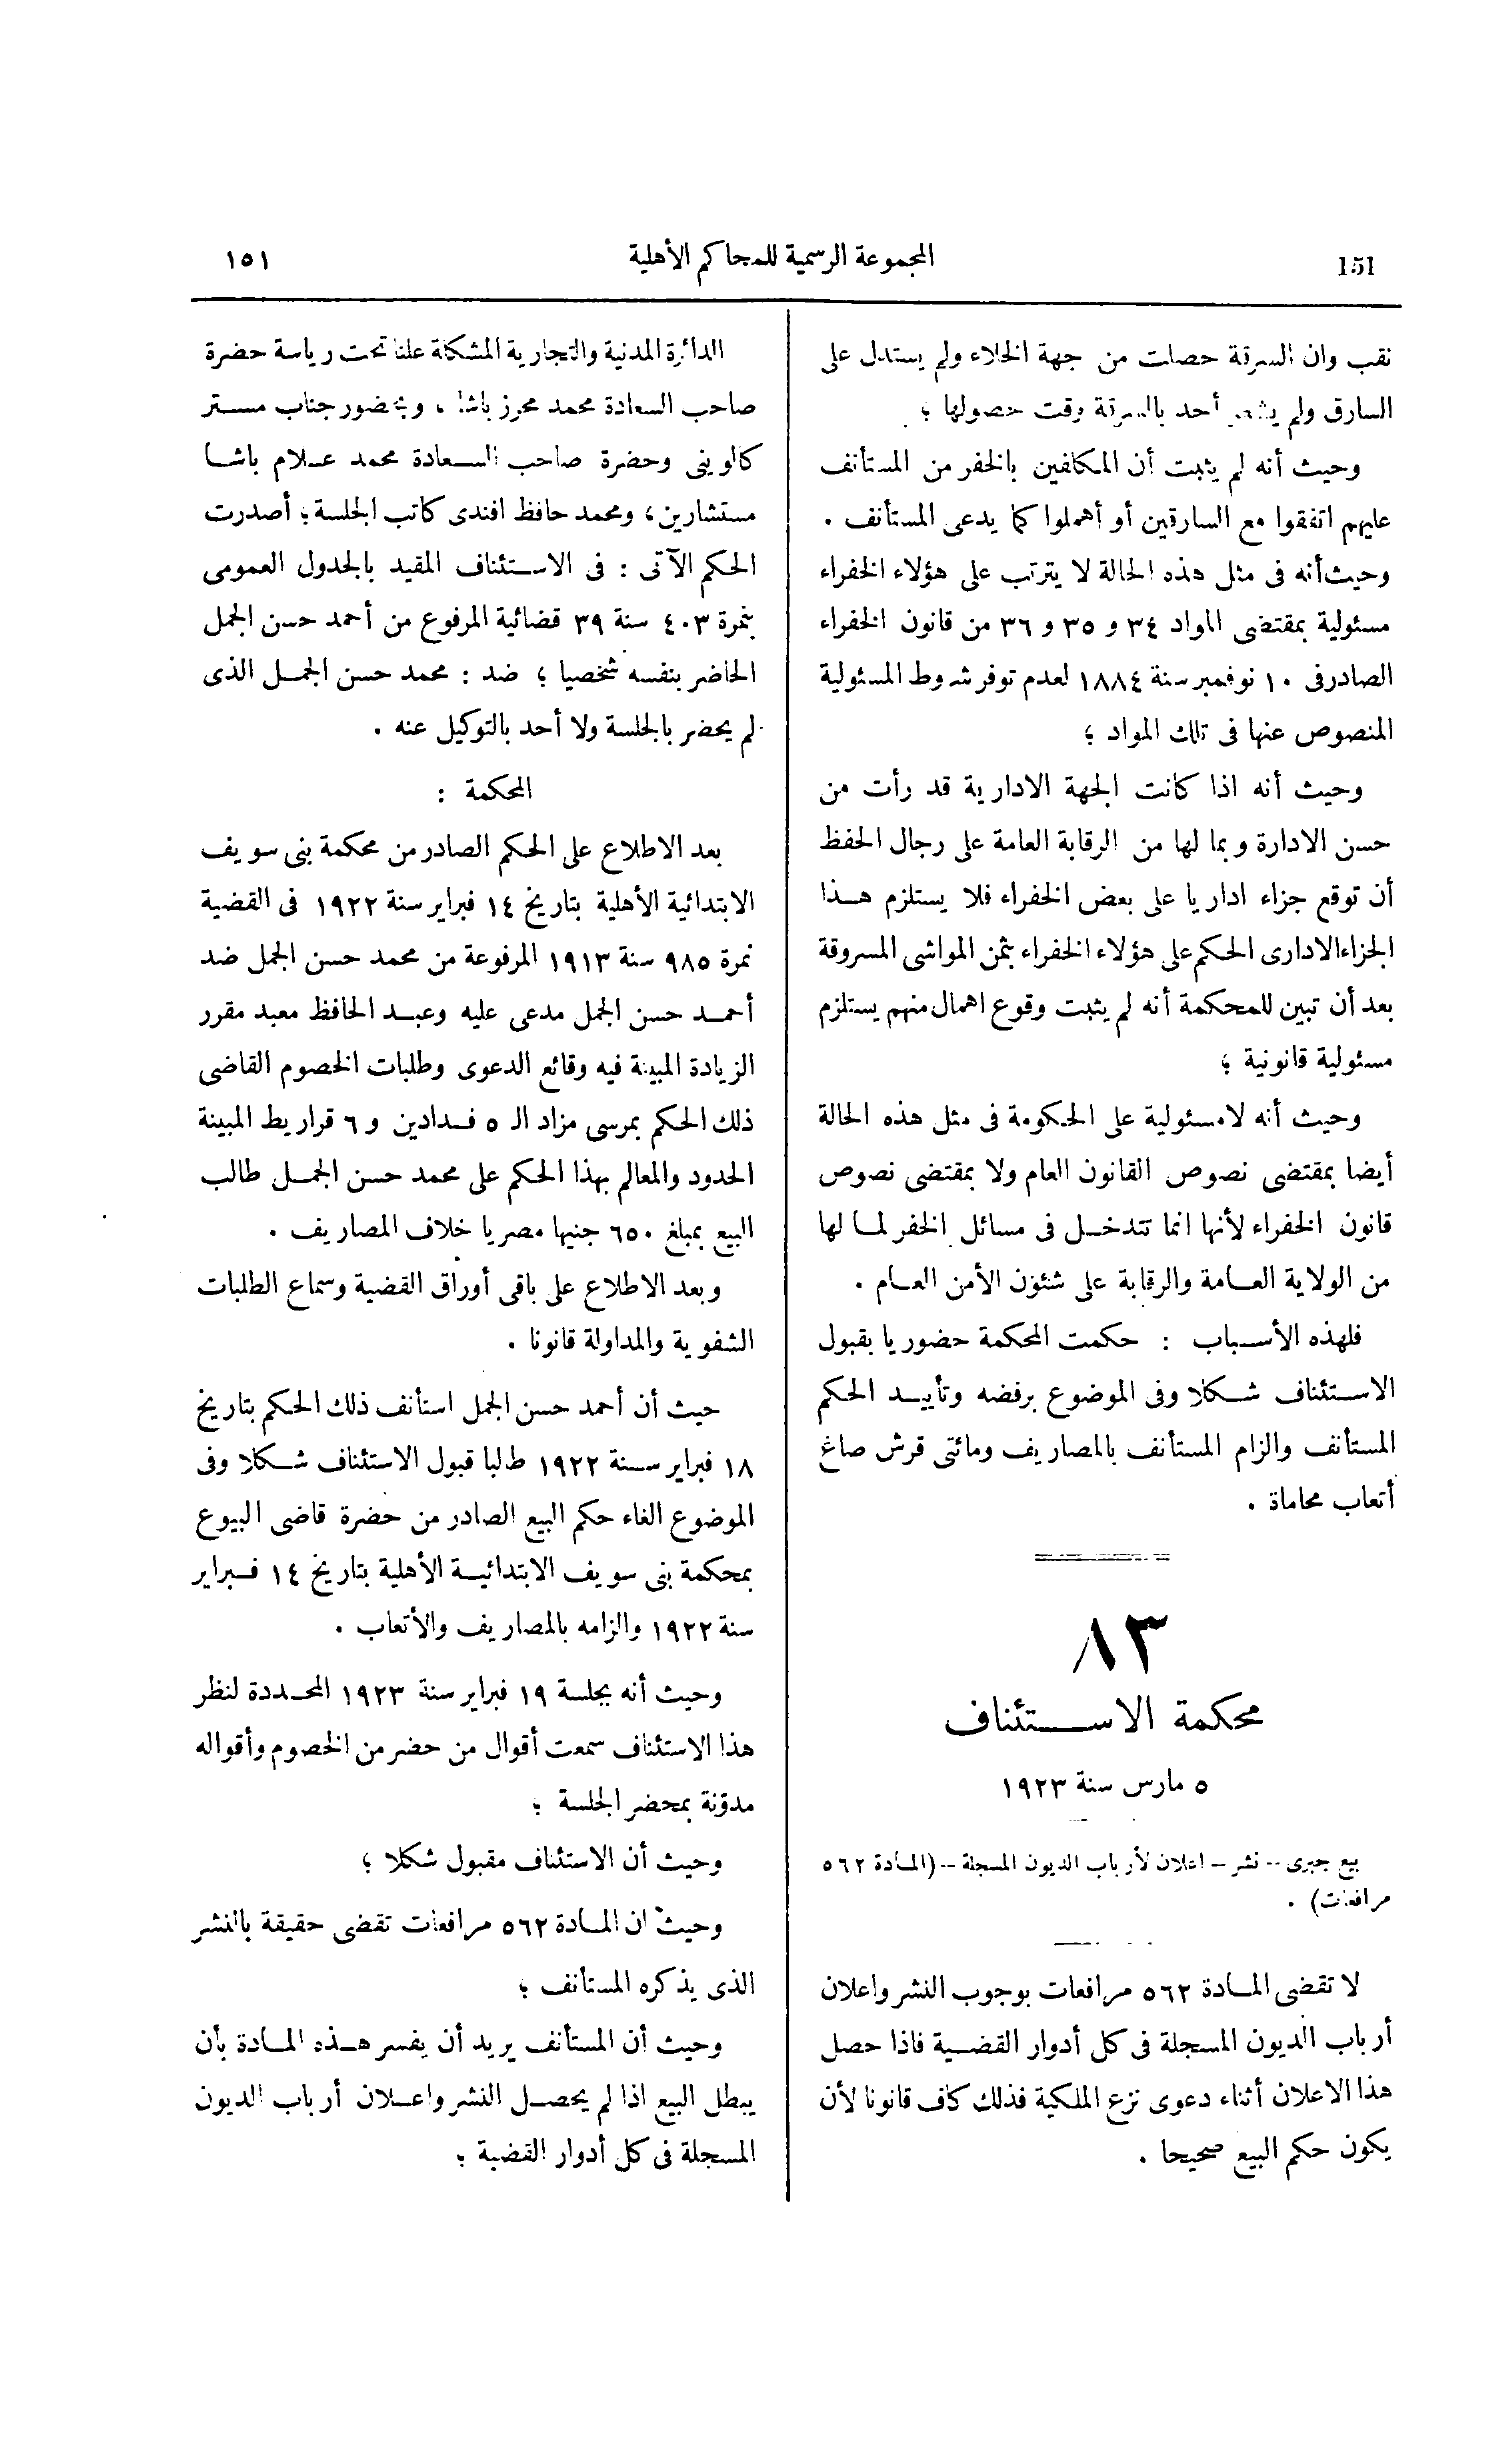 151
المجموعة الرسمية للمحاكم الأهلية
١٥١
نقب وان السرقة حصلت من جهة الخلاء ولم يستدل على
السارق ولم يشعر أحد بالسرقة وقت حصولها ؛
وحيث أنه لم يثبت أن المكلفين بالخفر من المستأنف
عليهم اتفقوا مع السارقين أو أهملوا كما يدعى المستأنف .
وحيث أنه فى مثل هذه الحالة لا يترتب على هؤلاء الخفراء
مسئولية بمقتضى المواد ٣٤ و ٣٥ و ٣٦ من قانون الخفراء
الصادر فى ١٠ نوفمبر سنة ١٨٨٤ لعدم توفر شروط المسئولية
المنصوص عنها فى تلك المواد ؛
وحيث أنه اذا كانت الجهة الادارية قد رأت من
حسن الادارة وبما لها من الرقابة العامة على رجال الحفظ
أن توقع جزاء اداريا على بعض الخفراء فلا يستلزم هذا
الجزاء الادارى الحكم على هؤلاء الخفراء بثمن المواشى المسروقة
بعد أن تبين للمحكمة أنه لم يثبت وقوع اهمال منهم يستلزم
مسئولية قانونية ؛
وحيث أنه لامسئولية على الحكومة فى مثل هذه الحالة
أيضا بمقتضى نصوص القانون العام ولا بمقتضى نصوص
قانون الخفراء لأنها انما تتدخل فى مسائل الخفر لما لها
من الولاية العامة والرقابة على شئون الأمن العام .
فلهذه الأسباب : حكمت المحكمة حضوريا بقبول
الاستئناف شكلا وفى الموضوع برفضه وتأييد الحكم
المستأنف والزام المستأنف بالمصاريف ومائتى قرش صاغ
أتعاب محاماة .
٨٣
محكمة الاستئناف
٥ مارس سنة ١٩٢٣
بيع جبرى -- نشر -- اعلان لأرباب الديون المسجلة -- (المادة ٥٦٢
مرافعات) .
لا تقضى المادة ٥٦٢ مرافعات بوجوب النشر واعلان
أرباب الديون المسجلة فى كل أدوار القضية فاذا حصل
هذا الاعلان أثناء دعوى نزع الملكية فذلك كاف قانونا لأن
يكون حكم البيع صحيحا .
الدائرة المدنية والتجارية المشكلة علنا تحت رياسة حضرة
صاحب السعادة محمد محرز باشا ، وبحضور جناب مستر
كالوينى وحضرة صاحب السعادة محمد علام باشا
مستشارين ، ومحمد حافظ افندى كاتب الجلسة ؛ أصدرت
الحكم الآتى : فى الاستئناف المقيد بالجدول العمومى
بنمرة ٤٠٣ سنة ٣٩ قضائية المرفوع من أحمد حسن الجمل
الحاضر بنفسه شخصيا ؛ ضد : محمد حسن الجمل الذى
لم يحضر بالجلسة ولا أحد بالتوكيل عنه .
المحكمة :
بعد الاطلاع على الحكم الصادر من محكمة بنى سويف
الابتدائية الأهلية بتاريخ ١٤ فبراير سنة ١٩٢٢ فى القضية
نمرة ٩٨٥ سنة ١٩١٣ المرفوعة من محمد حسن الجمل ضد
أحمد حسن الجمل مدعى عليه وعبد الحافظ معبد مقرر
الزيادة المبينة فيه وقائع الدعوى وطلبات الخصوم القاضى
ذلك الحكم بمرسى مزاد الـ ٥ فدادين و ٦ قراريط المبينة
الحدود والمعالم بهذا الحكم على محمد حسن الجمل طالب
البيع بمبلغ ٦٥٠ جنيها مصريا خلاف المصاريف .
وبعد الاطلاع على باقى أوراق القضية وسماع الطلبات
الشفوية والمداولة قانونا .
حيث أن أحمد حسن الجمل استأنف ذلك الحكم بتاريخ
١٨ فبراير سنة ١٩٢٢ طالبا قبول الاستئناف شكلا وفى
الموضوع الغاء حكم البيع الصادر من حضرة قاضى البيوع
بمحكمة بنى سويف الابتدائية الأهلية بتاريخ ١٤ فبراير
سنة ١٩٢٢ والزامه بالمصاريف والأتعاب .
وحيث أنه بجلسة ١٩ فبراير سنة ١٩٢٣ المحددة لنظر
هذا الاستئناف سمعت أقوال من حضر من الخصوم وأقواله
مدوّنة بمحضر الجلسة ؛
وحيث أن الاستئناف مقبول شكلا ؛
وحيث ان المادة ٥٦٢ مرافعات تقضى حقيقة بالنشر
الذى يذكره المستأنف ؛
وحيث أن المستأنف يريد أن يفسر هذه المادة بأن
يبطل البيع اذا لم يحصل النشر واعلان أرباب الديون
المسجلة فى كل أدوار القضية ؛